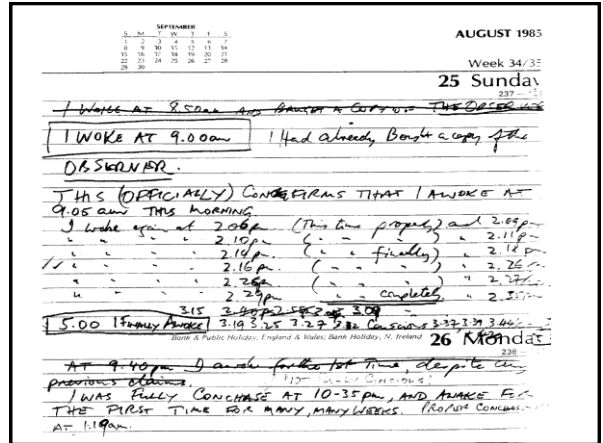 SEPTEMBER
S M T W T F S
1 2 3 4 5 6 7
8 9 10 11 12 13 14
15 16 17 18 19 20 21
22 23 24 25 26 27 28
29 30
AUGUST 1985
Week 34/35
25 Sunday
237
I WOKE AT 8.50am AND BAUGHT A COPY OF THE OBSERVER
I WOKE AT 9.00am I Had already Bought a copy of the
OBSERVER.
THIS (OFFICIALLY) CONFIRMS THAT I AWOKE AT
9.05 am THIS MORNING
I woke again at 2.06pm (This time properly) and 2.09p
" " " 2.10p (" " " ) " 2.11p
" " " 2.14p (" " finally) " 2.18p
" " " 2.16p (" " " ) " 2.26
" " " 2.26p (" " " ) " 2.27
" 2.29p (" " completely " 2.35
3.15 2.40p 3.09
5.00 I FINALLY AWOKE 3.19 3.25 3.27 Conscious 3.37 3.39 3.44
Bank & Public Holiday, England & Wales; Bank Holiday, N. Ireland
26 Monda
238
AT 9.40pm I awoke for the 1st Time, despite any
previous claims.
I WAS FULLY CONCHASE AT 10-35pm, AND AWAKE FOR
THE FIRST TIME FOR MANY, MANY WEEKS. PROPER
AT 1.19am.